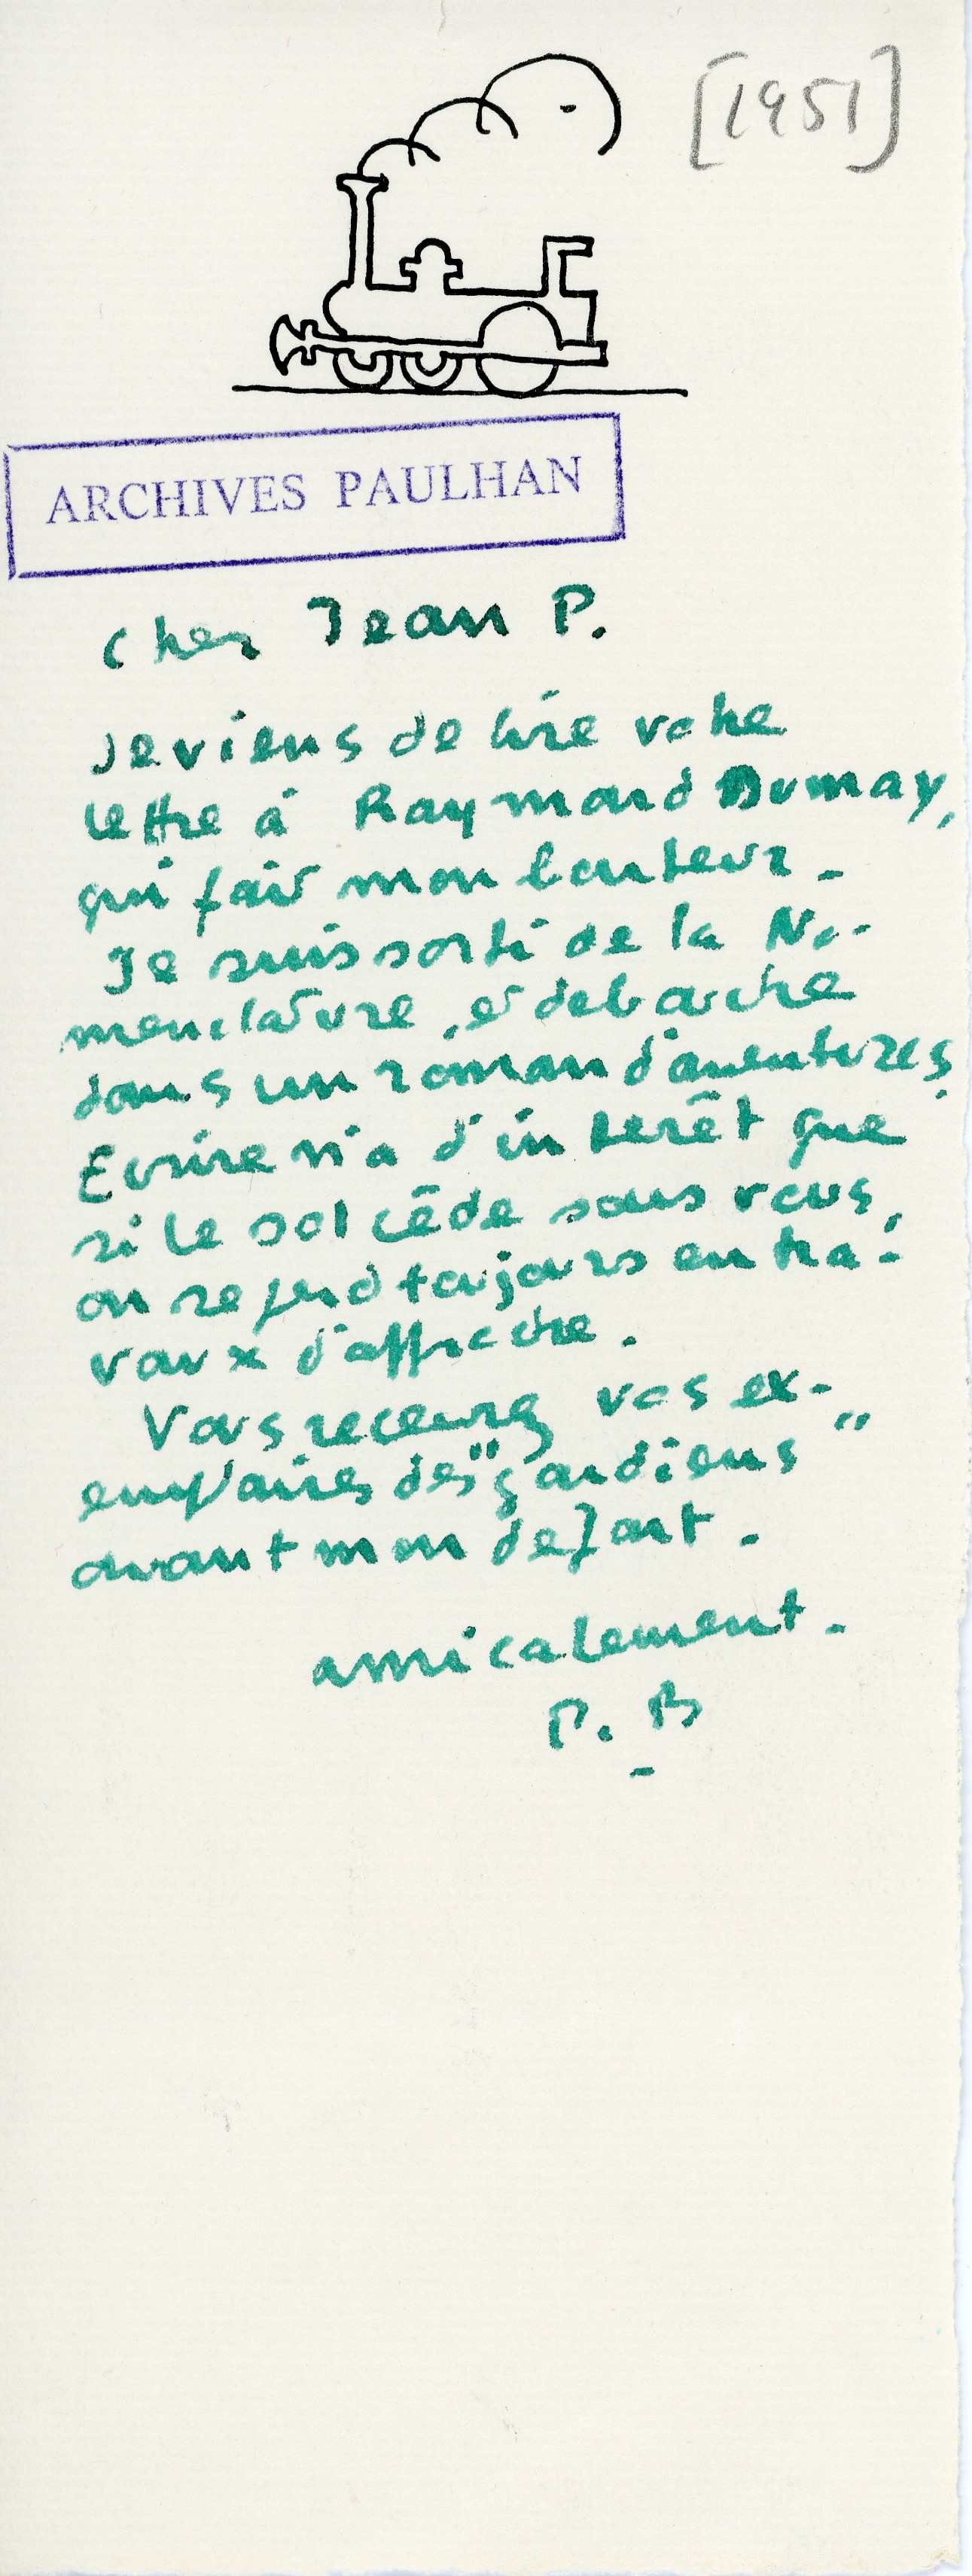 [1951]
ARCHIVES PAULHAN
Cher Jean P.
Je viens de lire votre
lettre à Raymond Dumay,
qui fait mon bonheur.
Je suis sorti de la No-
menclature, et débouche
dans un roman d'aventures.
Ecrire n'a d'intérêt que
si le sol cède sous vous,
on se perd toujours en tra-
vaux d'approche.
Vous recevrez vos ex-
emplaires des "gardiens"
avant mon départ.
amicalement.
P. B